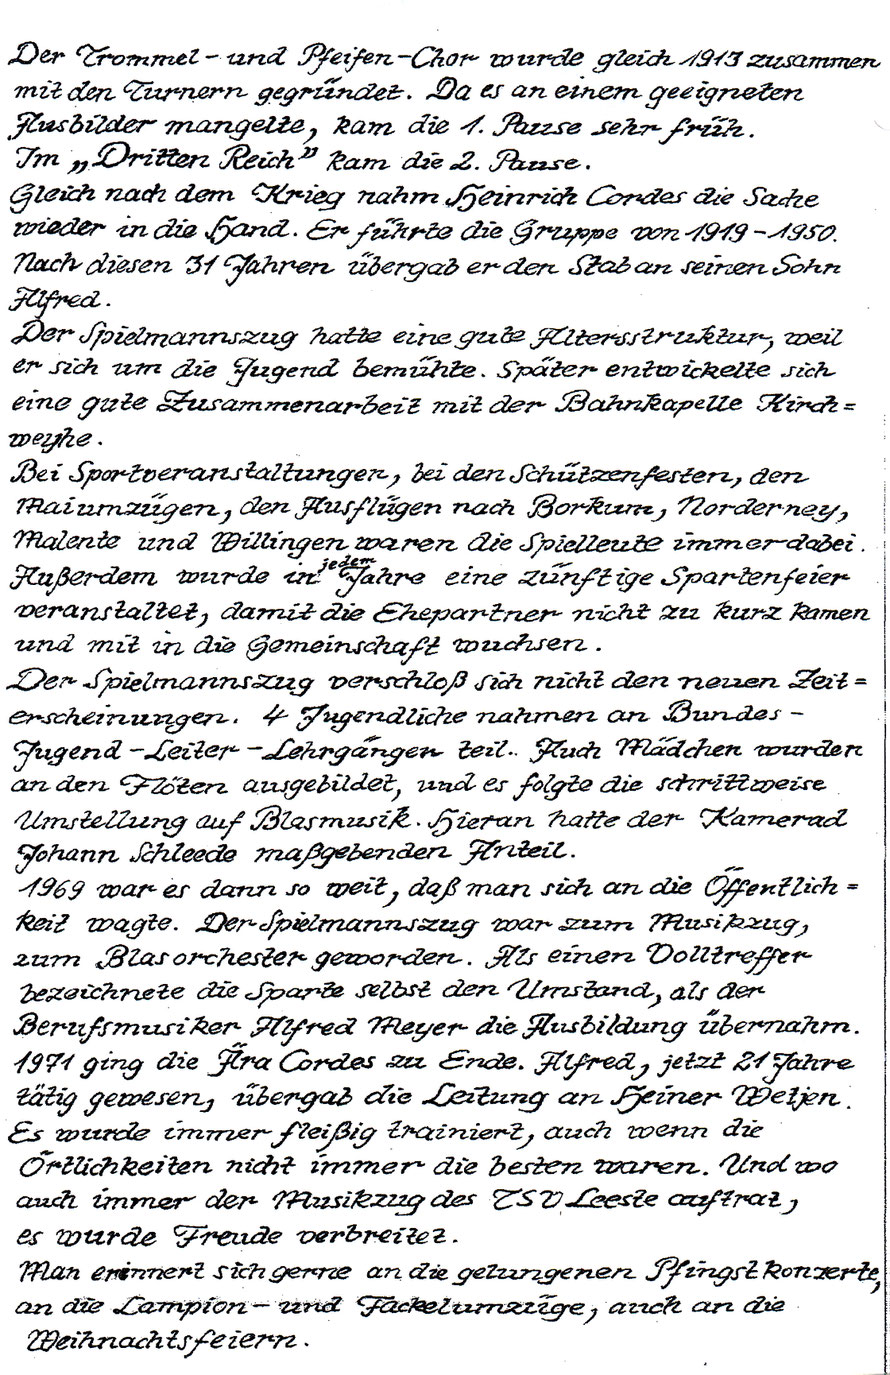 Der Trommel- und Pfeifen-Chor wurde gleich 1913 zusammen
mit den Turnern gegründet. Da es an einem geeigneten
Ausbilder mangelte, kam die 1. Pause sehr früh.
Im „Dritten Reich” kam die 2. Pause.
Gleich nach dem Krieg nahm Heinrich Cordes die Sache
wieder in die Hand. Er führte die Gruppe von 1919-1950.
Nach diesen 31 Jahren übergab er den Stab an seinen Sohn
Alfred.
Der Spielmannszug hatte eine gute Altersstruktur, weil
er sich um die Jugend bemühte. Später entwickelte sich
eine gute Zusammenarbeit mit der Bahnkapelle Kirch=
weyhe.
Bei Sportveranstaltungen, bei den Schützenfesten, den
Maiumzügen, den Ausflügen nach Borkum, Norderney,
Malente und Willingen waren die Spielleute immer dabei.
Außerdem wurde in jedem Jahre eine zünftige Spartenfeier
veranstaltet, damit die Ehepartner nicht zu kurz kamen
und mit in die Gemeinschaft wuchsen.
Der Spielmannszug verschloß sich nicht den neuen Zeit=
erscheinungen. 4 Jugendliche nahmen an Bundes-
Jugend-Leiter-Lehrgängen teil. Auch Mädchen wurden
an den Flöten ausgebildet, und es folgte die schrittweise
Umstellung auf Blasmusik. Hieran hatte der Kamerad
Johann Schleede maßgebenden Anteil.
1969 war es dann so weit, daß man sich an die Öffentlich=
keit wagte. Der Spielmannszug war zum Musikzug,
zum Blasorchester geworden. Als einen Volltreffer
bezeichnete die Sparte selbst den Umstand, als der
Berufsmusiker Alfred Meyer die Ausbildung übernahm.
1971 ging die Ära Cordes zu Ende. Alfred, jetzt 21 Jahre
tätig gewesen, übergab die Leitung an Heiner Wetjen.
Es wurde immer fleißig trainiert, auch wenn die
Örtlichkeiten nicht immer die besten waren. Und wo
auch immer der Musikzug des TSV Leeste auftrat,
es wurde Freude verbreitet.
Man erinnert sich gerne an die gelungenen Pfingstkonzerte,
an die Lampion- und Fackelumzüge, auch an die
Weihnachtsfeiern.